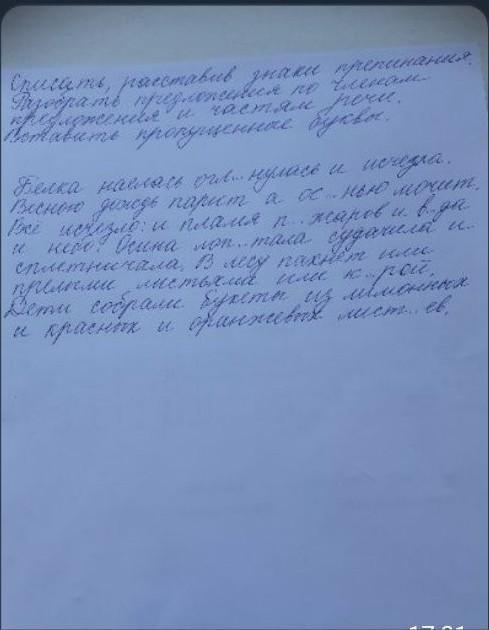 Списать, расставив знаки препинания.
Разобрать предложения по членам
предложения и частям речи.
Вставить пропущенные буквы.
Белка наелась огл..нулась и исчезла.
Весною дождь парит а ос..нью мочит.
Всё исчезло: и пламя п..жаров и в..ды
и небо. Осина лоп..тала судачила и
сплетничала. В лесу пахнет или
прелыми листьями или к..рой.
Дети собрали букеты из лимонных
и красных и оранжевых лист..ев.